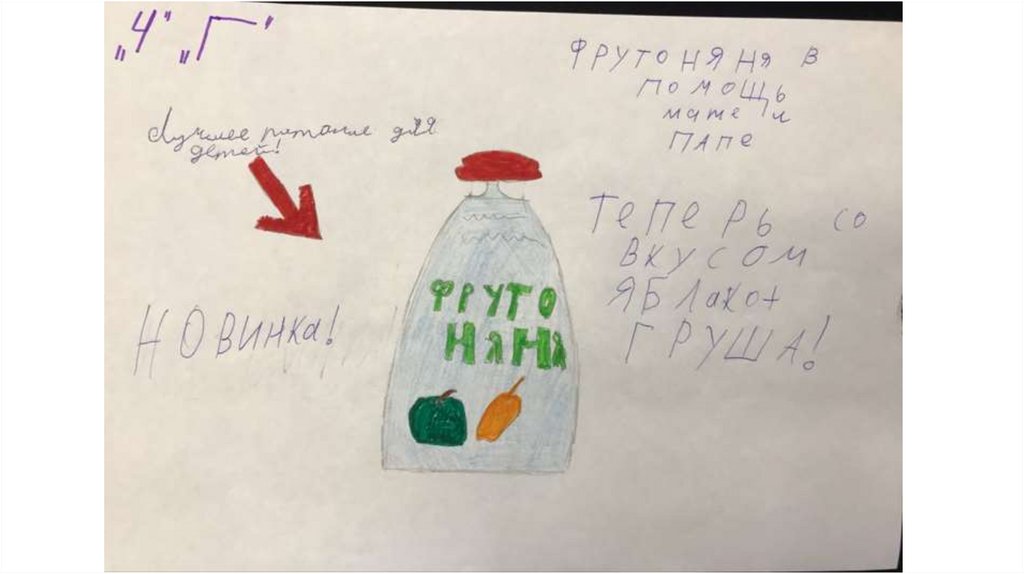 „4" „Г"
ФРУТОНЯНЯ В
ПОМОЩЬ
маме и
ПАПЕ
Лучшее питание для
детей!
ТЕПЕРЬ СО
ВКУСОМ
ЯБЛако+
ГРУША!
НОВИНКа!
ФРУТО
НЯНЯ